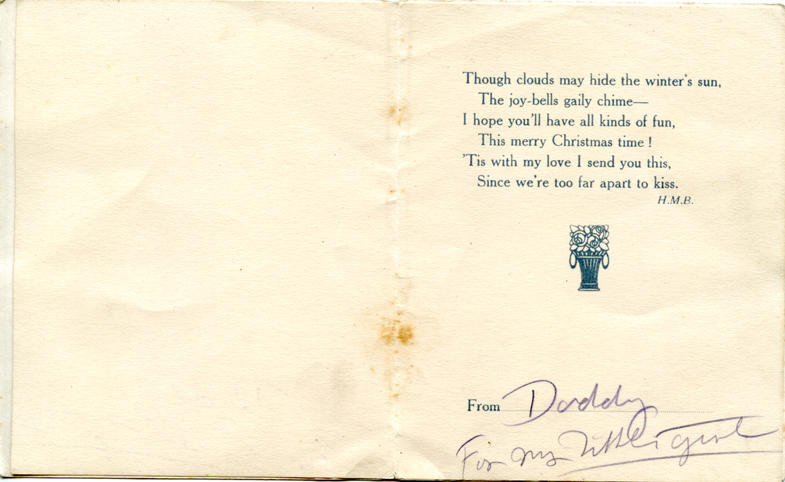 Though clouds may hide the winter's sun,
The joy-bells gaily chime—
I hope you'll have all kinds of fun,
This merry Christmas time !
'Tis with my love I send you this,
Since we're too far apart to kiss.
H.M.B.
From Daddy
For my little girl